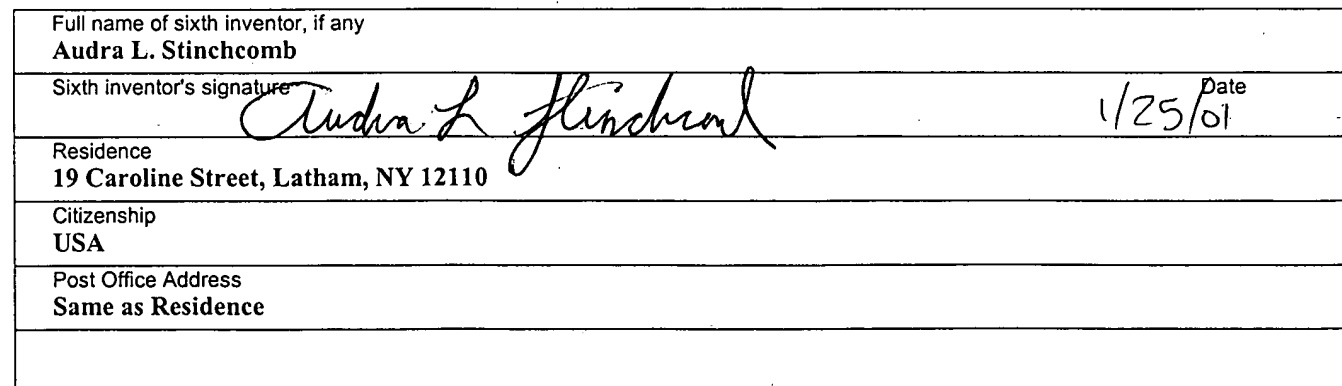 Full name of sixth inventor, if any
Audra L. Stinchcomb
Sixth inventor's signature Audra L Stinchcomb 1/25/01 Date
Residence
19 Caroline Street, Latham, NY 12110
Citizenship
USA
Post Office Address
Same as Residence